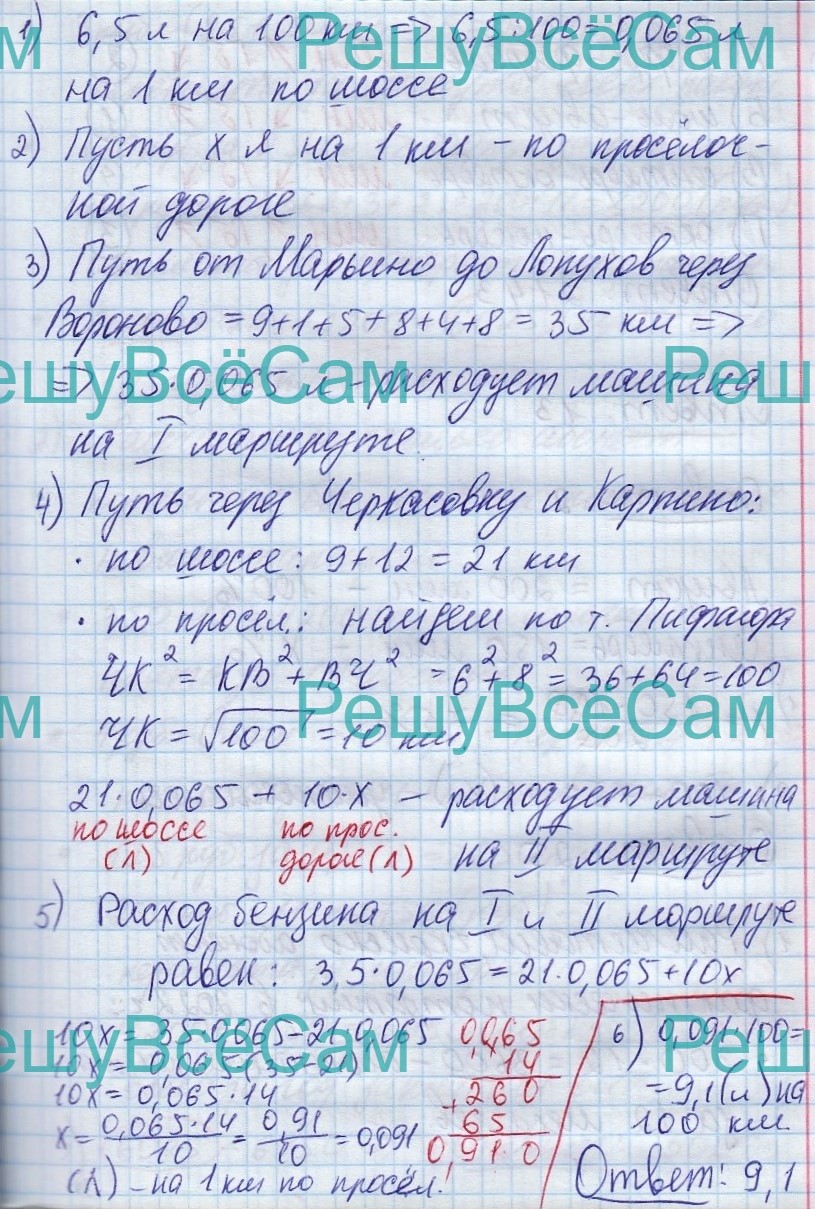 1) 6,5 л на 100 км => 6,5:100=0,065 л
на 1 км по шоссе
2) Пусть x л на 1 км – по просёлоч-
ной дороге
3) Путь от Марьино до Лопухов через
Вороново = 9+1+5+8+4+8 = 35 км =>
=> 35·0,065 л – расходует машина
на I маршруте.
4) Путь через Черкасовку и Карпино:
· по шоссе: 9+12 = 21 км
· по просёл.: найдем по т. Пифагора
ЧК² = КВ² + ВЧ² = 6² + 8² = 36+64=100
ЧК = √100 = 10 км.
21·0,065 + 10·x – расходует машина
по шоссе (л) по прос. дороге (л) на II маршруте
5) Расход бензина на I и II маршруте
равен: 3,5·0,065 = 21·0,065+10x
10x = 35·0,065–21·0,065
10x = 0,065(35–21)
10x = 0,065·14
x = 0,065·14/10 = 0,91/10 = 0,091
(л) – на 1 км по просёл.
0,065
14
+260
65
0,91 0
6) 0,091·100=
=9,1(л) на
100 км.
Ответ: 9,1
РешуВсёСам
РешуВсёСам
РешуВсёСам
РешуВсёСам